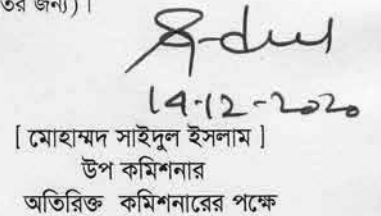 তর জন্য)।
14-12-2020
[ মোহাম্মদ সাইদুল ইসলাম ]
উপ কমিশনার
অতিরিক্ত কমিশনারের পক্ষে